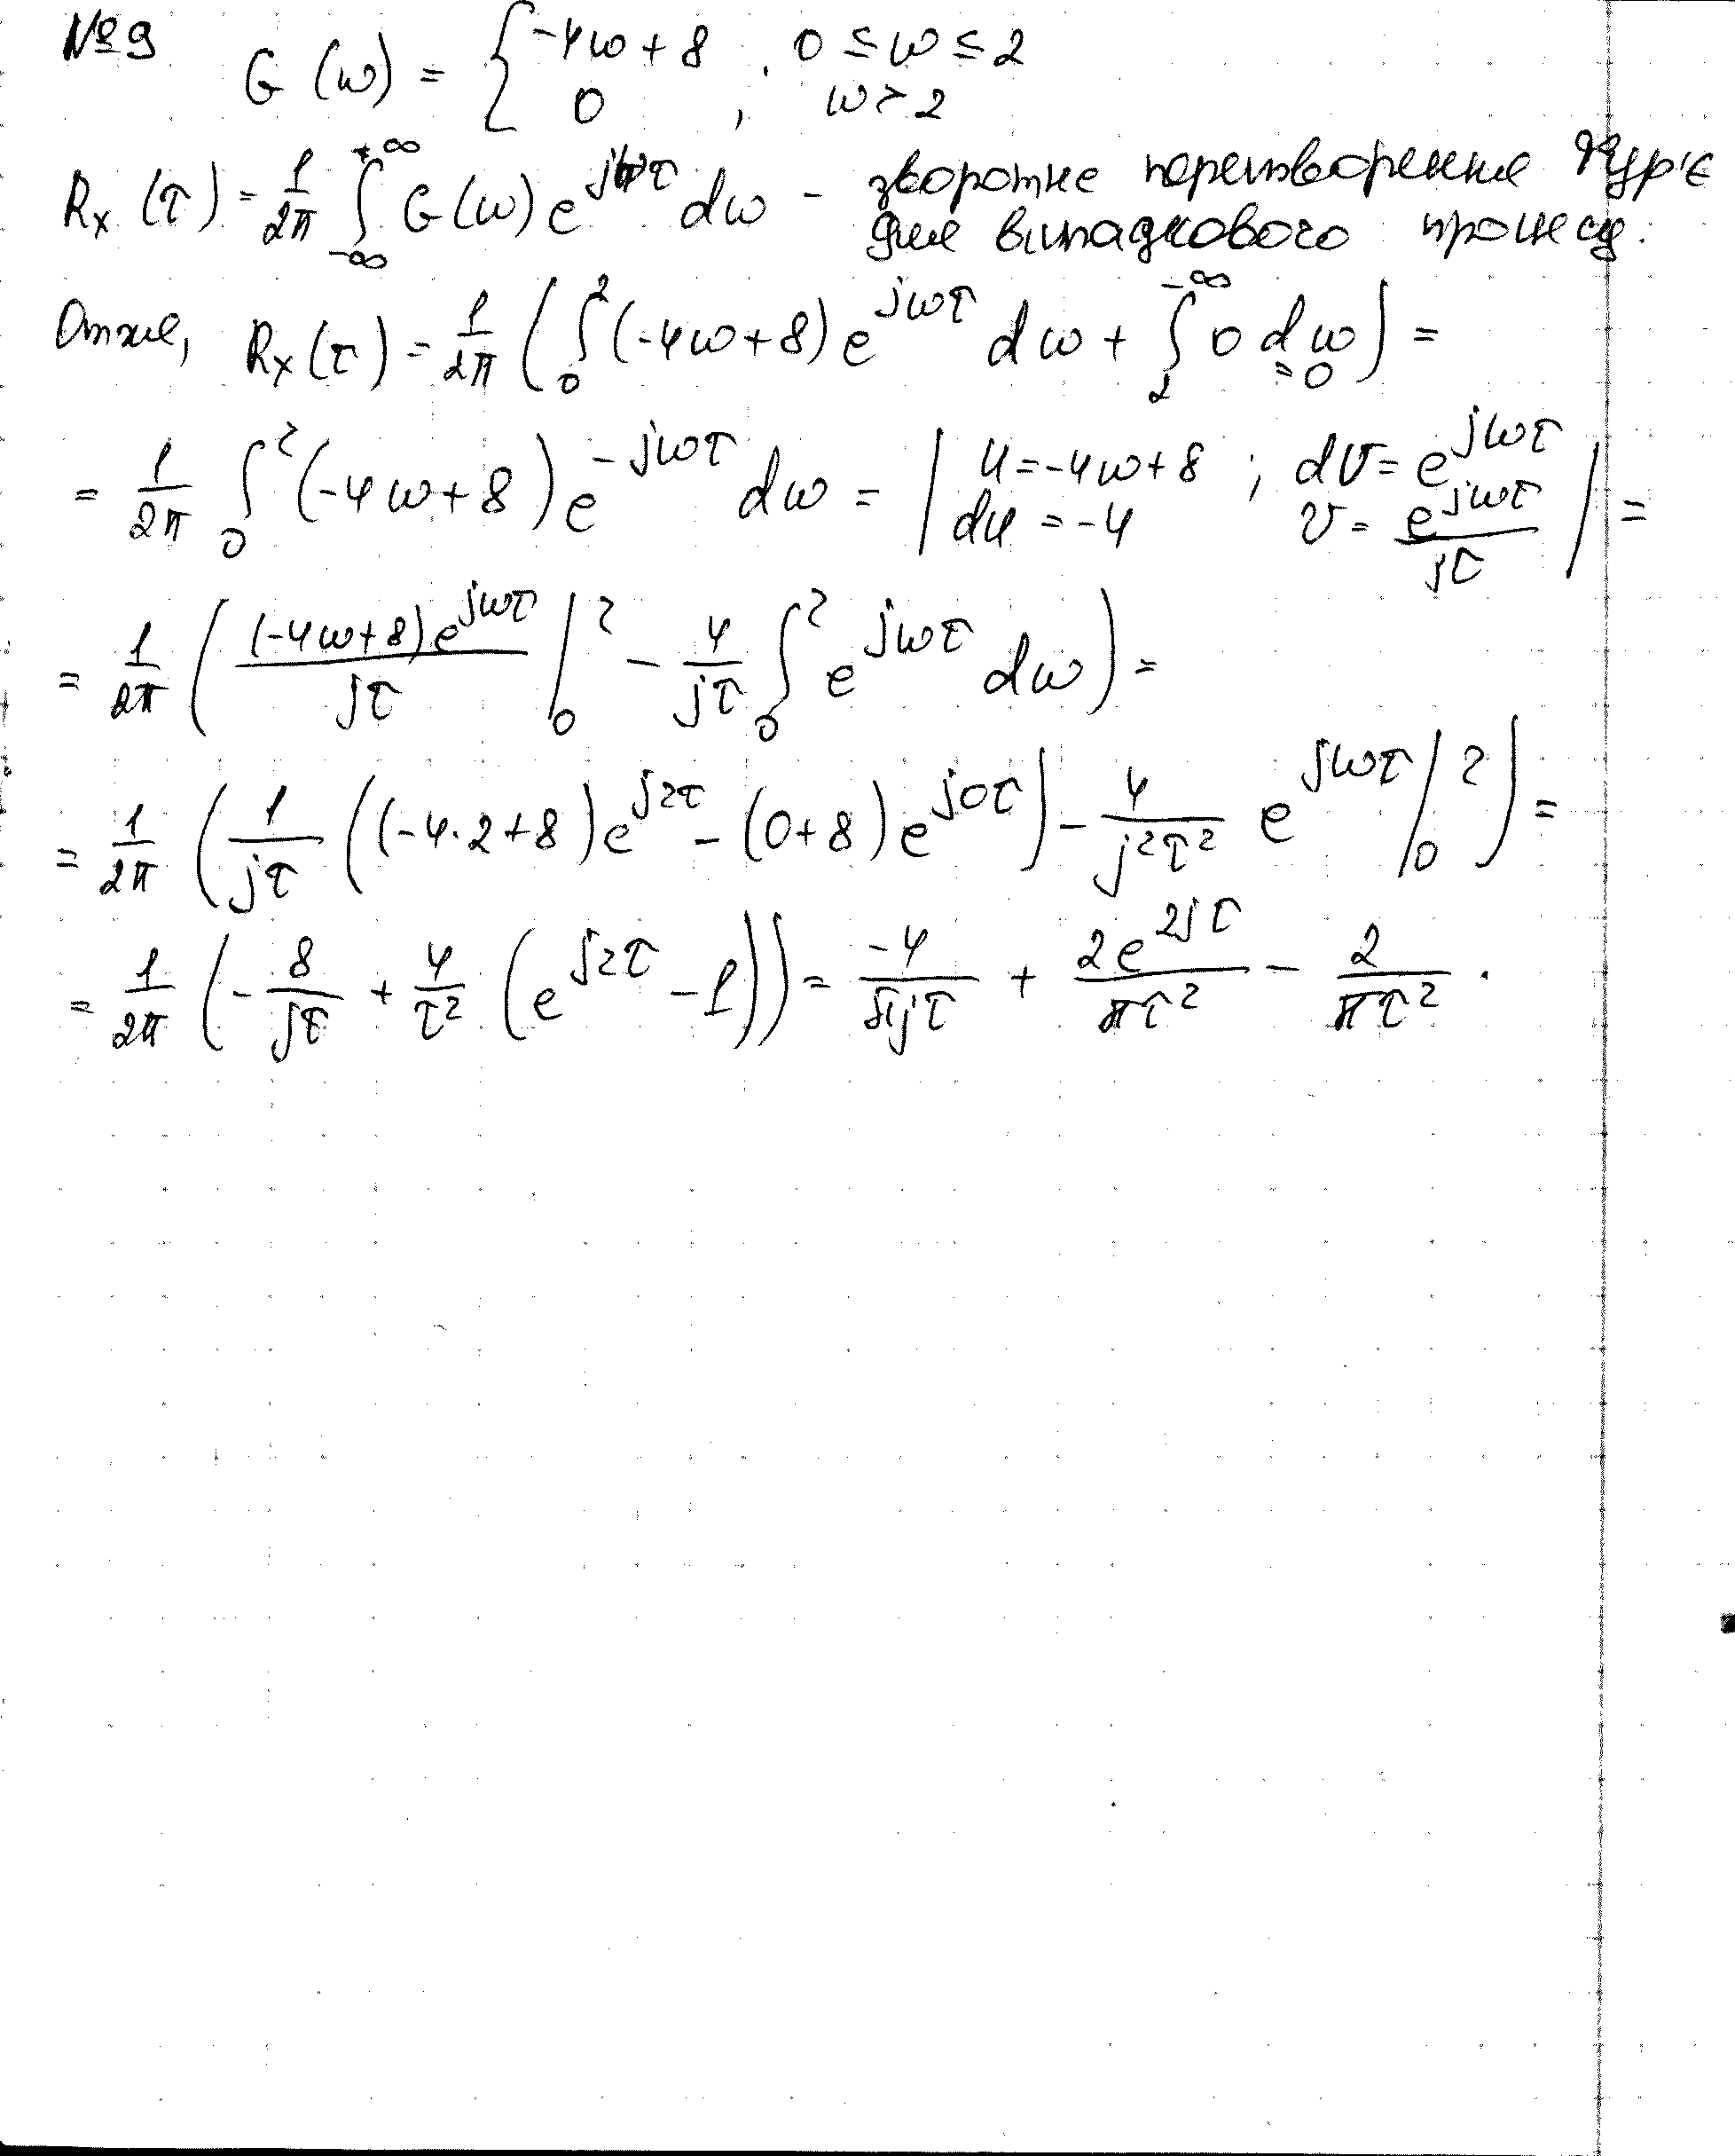 №9 G(ω) = { -4ω + 8 , 0 ≤ ω ≤ 2
0 , ω > 2
Rx(τ) = 1/2π ∫_{-∞}^{+∞} G(ω) e^{jωτ} dω - зворотнє перетворення Фур'є
для випадкового процесу.
Отже, Rx(τ) = 1/2π ( ∫_0^2 (-4ω+8) e^{jωτ} dω + ∫_2^{-∞} 0 dω ) =
= 0
= 1/2π ∫_0^2 (-4ω+8) e^{-jωτ} dω = | u = -4ω+8 ; dv = e^{jωτ}
du = -4 v = e^{jωτ}/jτ | =
= 1/2π ( (-4ω+8)e^{jωτ}/jτ |_0^2 - 4/jτ ∫_0^2 e^{jωτ} dω ) =
= 1/2π ( 1/jτ ( (-4·2+8) e^{j2τ} - (0+8) e^{j0τ} ) - 4/j²τ² e^{jωτ} |_0^2 ) =
= 1/2π ( - 8/jτ + 4/τ² ( e^{j2τ} - 1 ) ) = -4/πjτ + 2e^{2jτ}/πτ² - 2/πτ² .